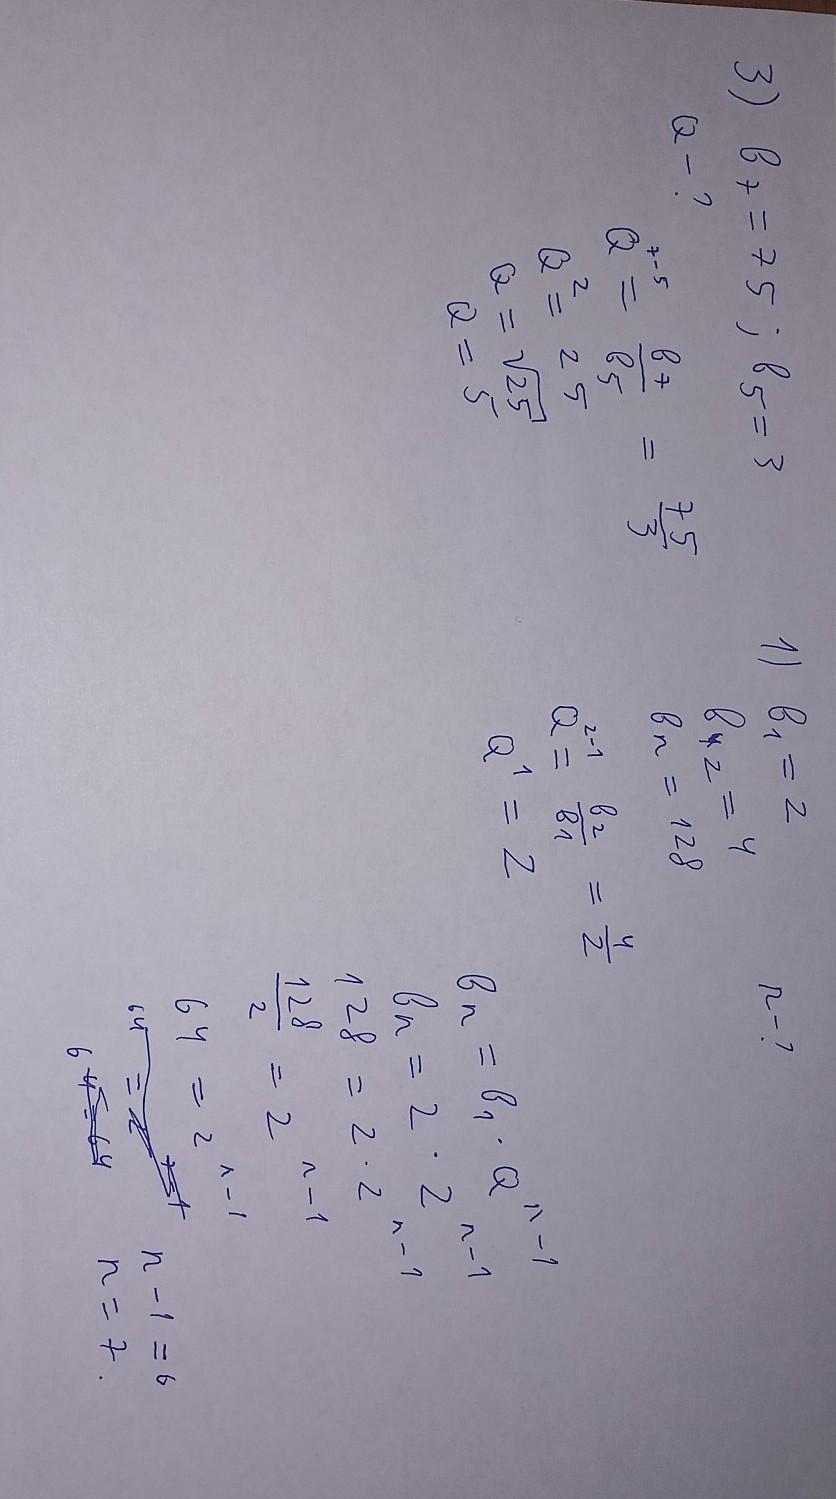 3) b₇ = 75 ; b₅ = 3
Q - ?
Q⁷⁻⁵ = b₇/b₅ = 75/3
Q² = 25
Q = √25
Q = 5
1) b₁ = 2
b₂ = 4
bn = 128
n - ?
Q²⁻¹ = b₂/b₁ = 4/2
Q¹ = 2
bn = b₁ · Qⁿ⁻¹
bn = 2 · 2ⁿ⁻¹
128 = 2 · 2ⁿ⁻¹
128/2 = 2ⁿ⁻¹
64 = 2ⁿ⁻¹
n - 1 = 6
n = 7.